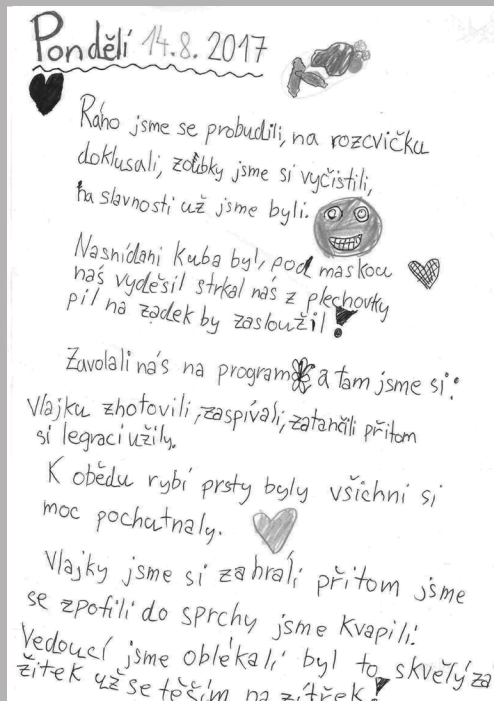 Pondělí 14.8.2017
Ráno jsme se probudili, na rozcvičku
doklusali, zoubky jsme si vyčistili,
na slavnosti už jsme byli.
Nasnídani Kuba byl, pod maskou
naš vyděsil strkal nás z plechovky
pil na zadek by zasloužil!
Zavolali nás na program a tam jsme si:
Vlajku zhotovili, zaspívali, zatančili přitom
si legraci užily.
K obědu rybí prsty byly všichni si
moc pochutnaly.
Vlajky jsme si zahráli přitom jsme
se zpotili do sprchy jsme kvapili.
Vedoucí jsme oblékali byl to skvělý zá
žitek už se těším na zítřek!